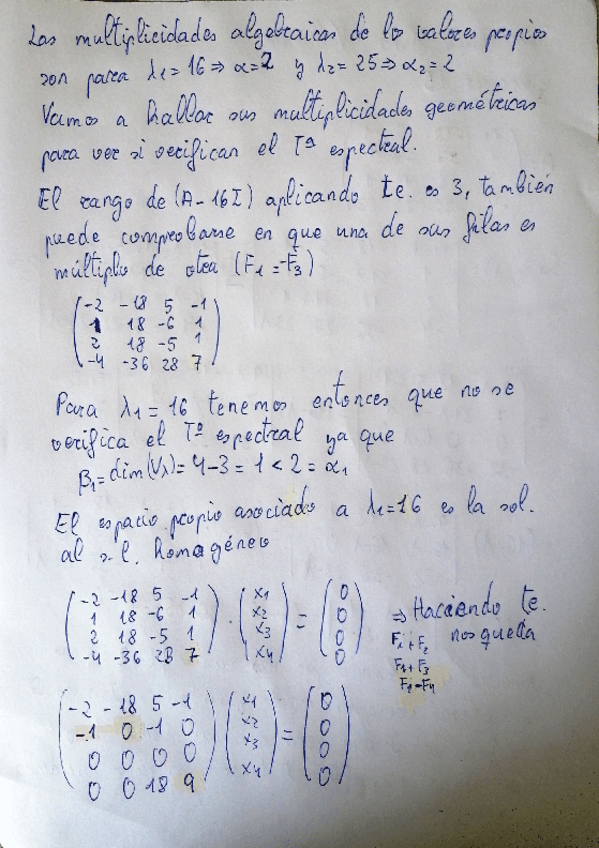 Las multiplicidades algebraicas de los valores propios
son para λ1 = 16 ⇒ α = 2 y λ2 = 25 ⇒ α2 = 2
Vamos a hallar sus multiplicidades geométricas
para ver si verifican el Tª espectral.
El rango de (A - 16I) aplicando te. es 3, también
puede comprobarse en que una de sus filas es
múltiplo de otra (F1 = -F3)
-2 -18 5 -1
1 18 -6 1
2 18 -5 1
-4 -36 28 7
Para λ1 = 16 tenemos entonces que no se
verifica el Tª espectral ya que
β1 = dim(Vλ) = 4 - 3 = 1 < 2 = α1
El espacio propio asociado a λ1 = 16 es la sol.
al s.l. homogéneo
-2 -18 5 -1 x1 0
1 18 -6 1 x2 0
2 18 -5 1 · x3 = 0 ⇒ Haciendo te.
-4 -36 28 7 x4 0 nos queda
F1+F2
F1+F3
-2 -18 5 -1 x1 0
-1 0 -1 0 x2 0
0 0 0 0 x3 = 0
0 0 18 9 x4 0